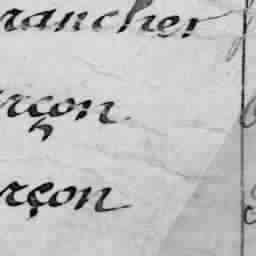 rancher
rçon
rçon